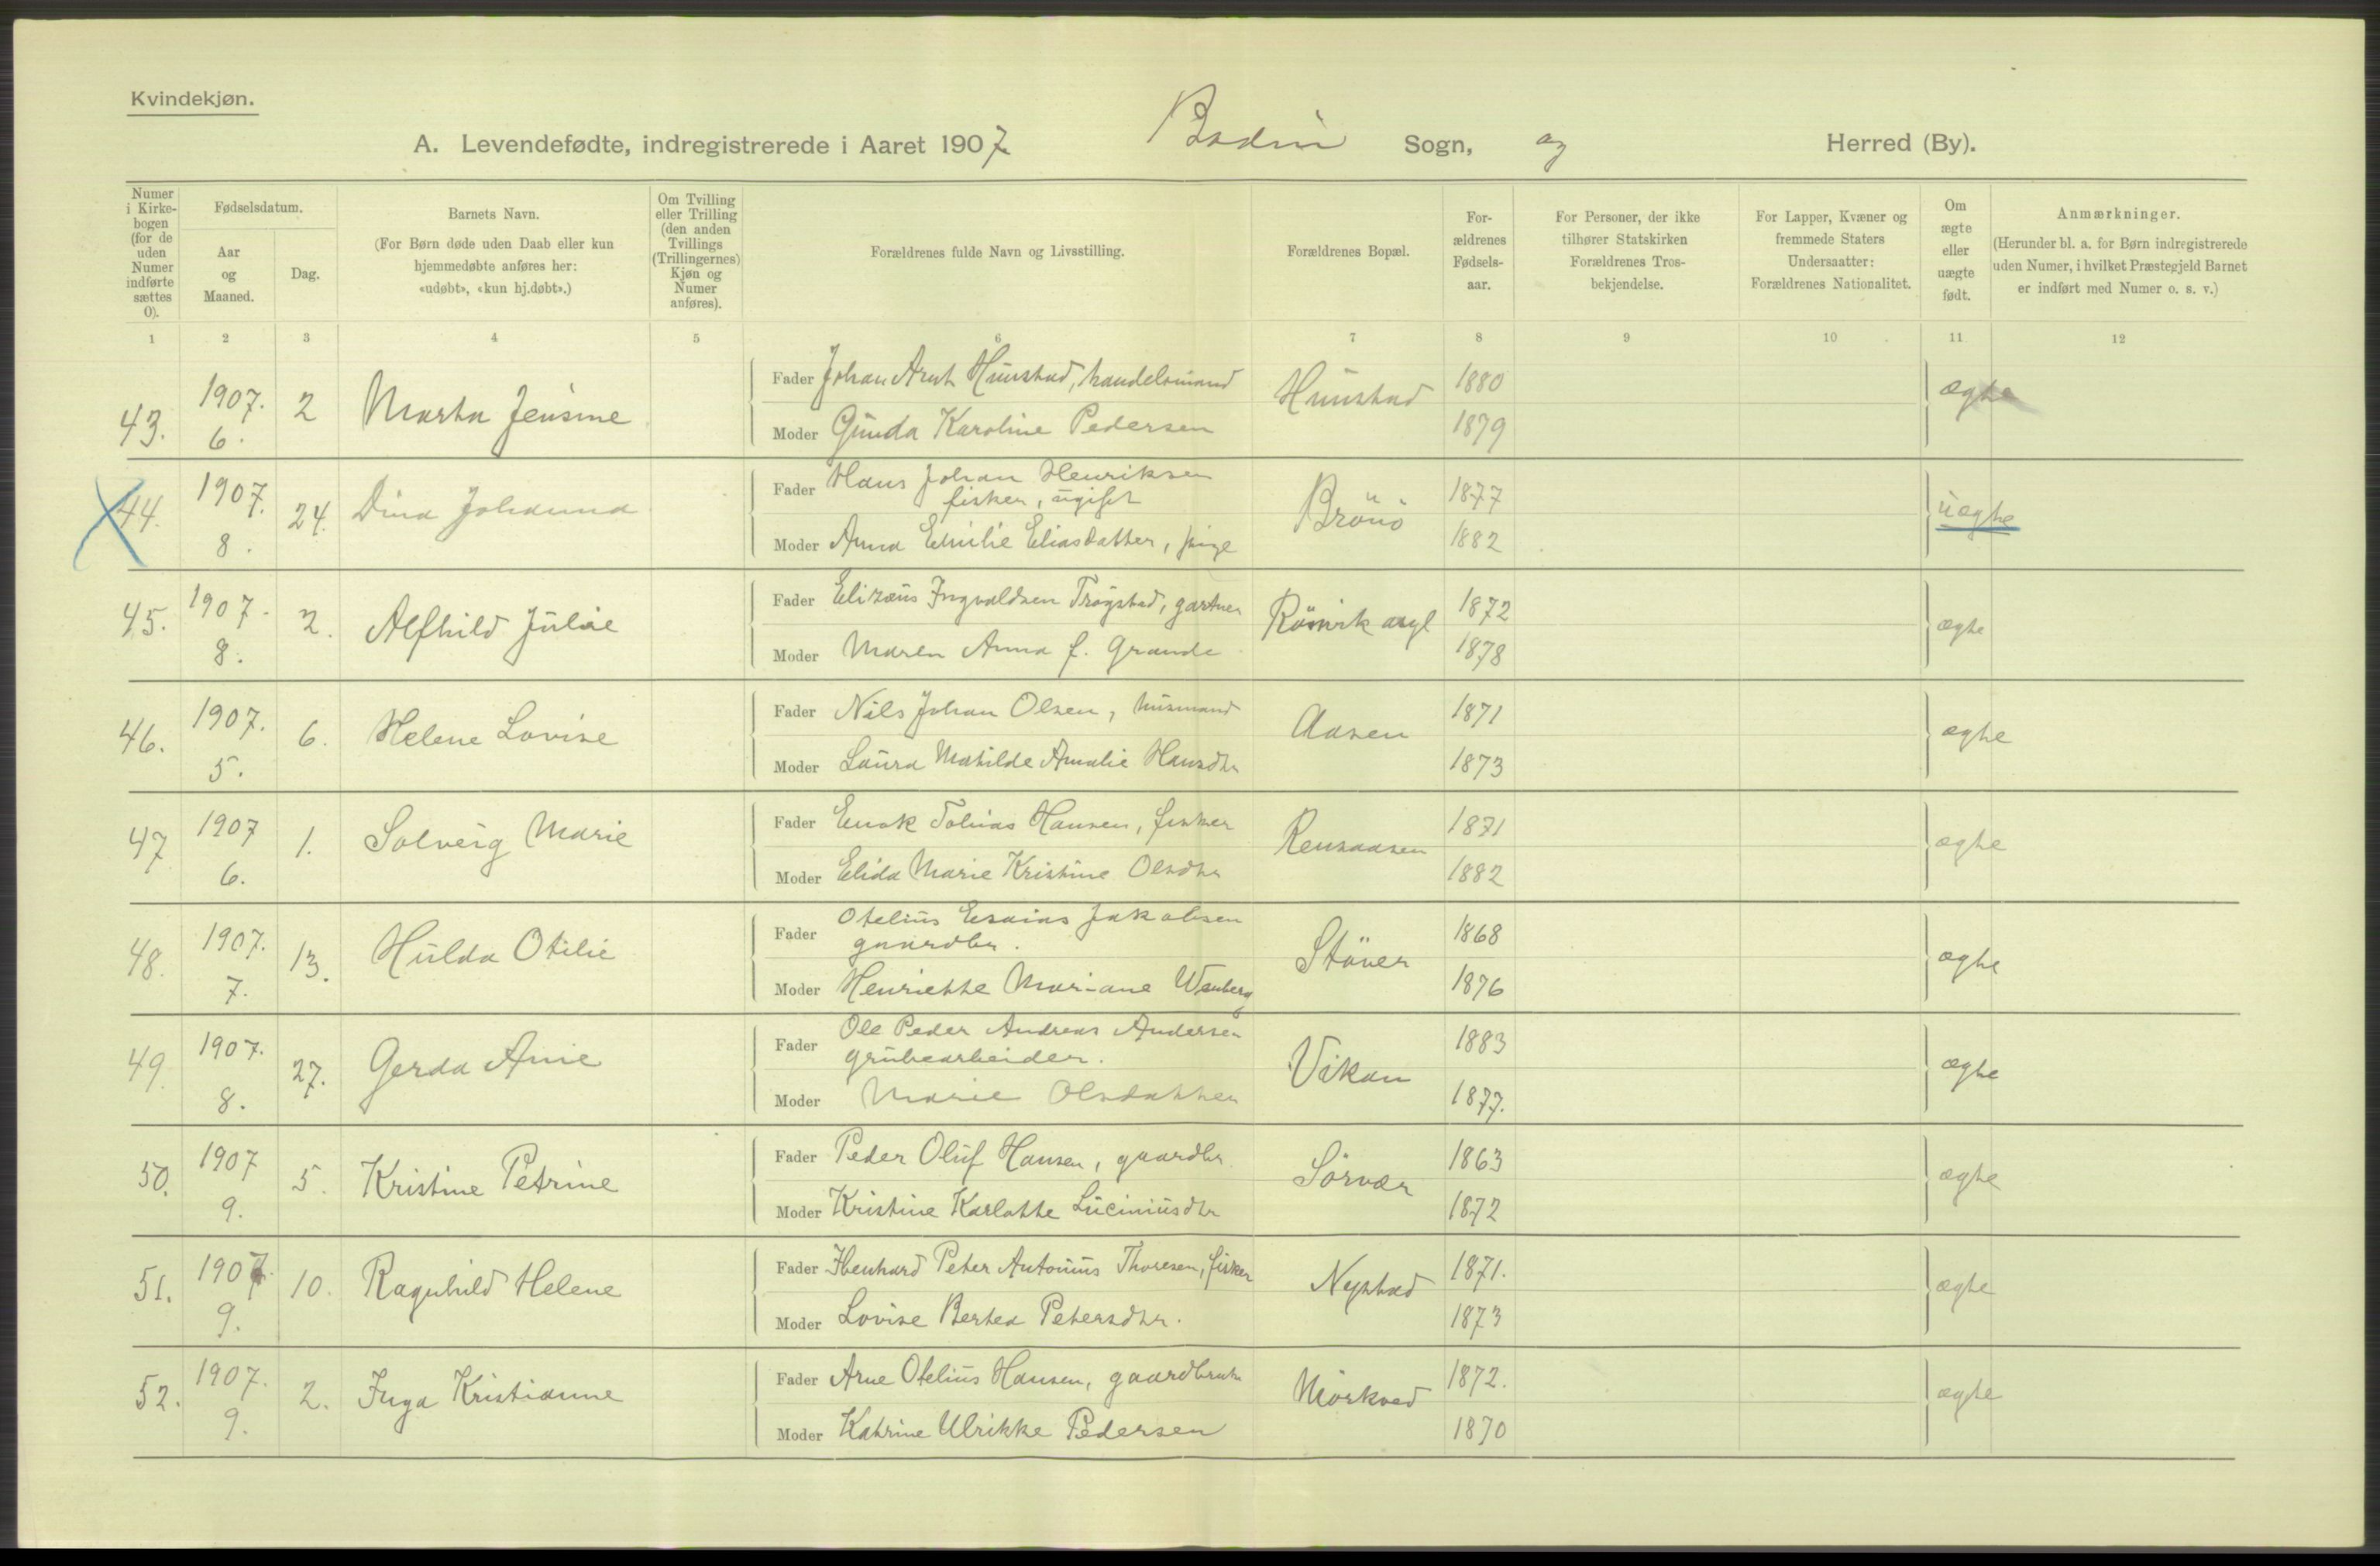 Kvindekjøn.
A. Levendefødte, indregistrerede i Aaret 1907. Bodin Sogn, og Herred (By).
Numer i Kirkebogen (for de uden Numer indførte sættes 0).
Fødselsdatum.
Aar og Maaned.
Dag.
Barnets Navn.
(For Børn døde uden Daab eller kun hjemmedøbte anføres her: «udøbt», «kun hj.døbt».)
Om Tvilling eller Trilling (den anden Tvillings (Trillingernes) Kjøn og Numer anføres).
Forældrenes fulde Navn og Livsstilling.
Forældrenes Bopæl.
Forældrenes Fødselsaar.
For Personer, der ikke tilhører Statskirken Forældrenes Trosbekjendelse.
For Lapper, Kvæner og fremmede Staters Undersaatter: Forældrenes Nationalitet.
Om ægte eller uægte født.
Anmærkninger.
(Herunder bl. a. for Børn indregistrerede uden Numer, i hvilket Præstegjeld Barnet er indført med Numer o. s. v.)
1 2 3 4 5 6 7 8 9 10 11 12
43. 1907. 6. 2 Marta Jensine Fader Johan Arnt Hunstad, handelsmand Hunstad 1880 ægte
Moder Gunda Karoline Pedersen 1879
44. 1907. 8. 24. Dina Johanna Fader Hans Johan Henriksen fisker, ugift Brönö 1877 uægte
Moder Anna Emilie Eliasdatter, pige 1882
45. 1907. 8. 2. Alfhild Julie Fader Elizæus Ingvaldsen Trøgstad, gartner Rönvik asyl 1872 ægte
Moder Maren Anna f. Grande 1878
46. 1907. 5. 6. Helene Lovise Fader Nils Johan Olsen, husmand Aasen 1871 ægte
Moder Laura Matilde Amalie Hansdtr 1873
47 1907 6. 1. Solveig Marie Fader Enok Tobias Hansen, fisker Rensaasen 1871 ægte
Moder Elida Marie Kristine Olsdtr 1882
48. 1907. 7. 13. Hulda Otilie Fader Otelius Esaias Jakobsen gaardbr. Stöver 1868 ægte
Moder Henriette Mariane Wenberg 1876
49. 1907. 8. 27. Gerda Anie Fader Ole Peder Andreas Andersen grubearbeider. Vikan 1883 ægte
Moder Marie Olsdatter 1877.
50. 1907 9. 5. Kristine Petrine Fader Peder Oluf Hansen, gaardbr. Sörvær 1863 ægte
Moder Kristine Karlotte Luciniusdtr 1872
51. 1907. 9. 10. Ragnhild Helene Fader Ibenhard Peter Antonius Thoresen, fisker Nystad 1871. ægte
Moder Lovise Bertea Petersdtr. 1873
52. 1907. 9. 2. Inga Kristianne Fader Arne Otelius Hansen, gaardbruk Mörkved 1872. ægte
Moder Katrine Ulrikke Pedersen 1870